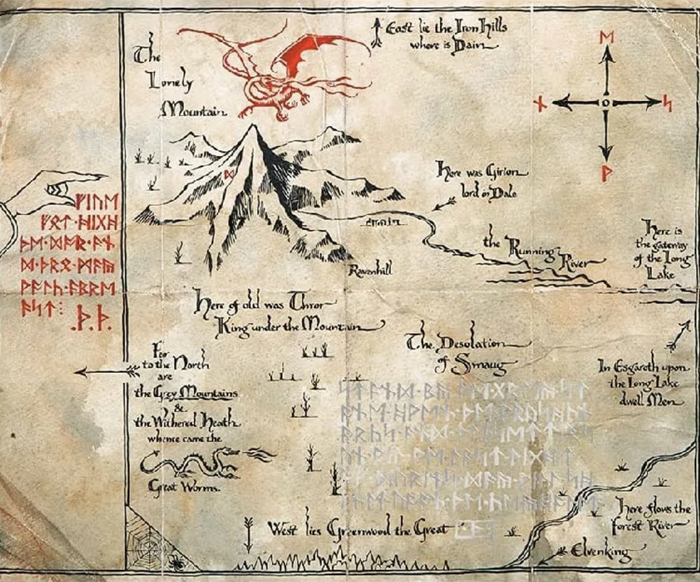 East lie the Iron Hills
where is Dain
The
Lonely
Mountain
ᛖ
ᚾ
ᛋ
ᚹ
ᛞ
Here was Girion
lord in Dale
ᚠᛁᚢᛖ
ᚠᚩᛏ·ᚻᛁᚷᚻ
ᚦᛖ·ᛞᚩᚱ·ᚪᚾ
ᛞ·ᚦᚱᚩ·ᛗᚪᚣ
ᚹᚪᛚᚳ·ᚪᛒᚱᛖ
ᚪᛋᛏ⁝
·ᚦ·ᚦ·
the Running River
Here is
the gateway
of the Long
Lake
Ravenhill
Here of old was Thror
King under the Mountain
The Desolation
of Smaug
Far
to the North
are
the Grey Mountains
&
the Withered Heath
whence came the
Great Worms
In Esgaroth upon
the Long Lake
dwell Men
West lies Greenwood the Great
Here flows the
Forest River
Elvenking